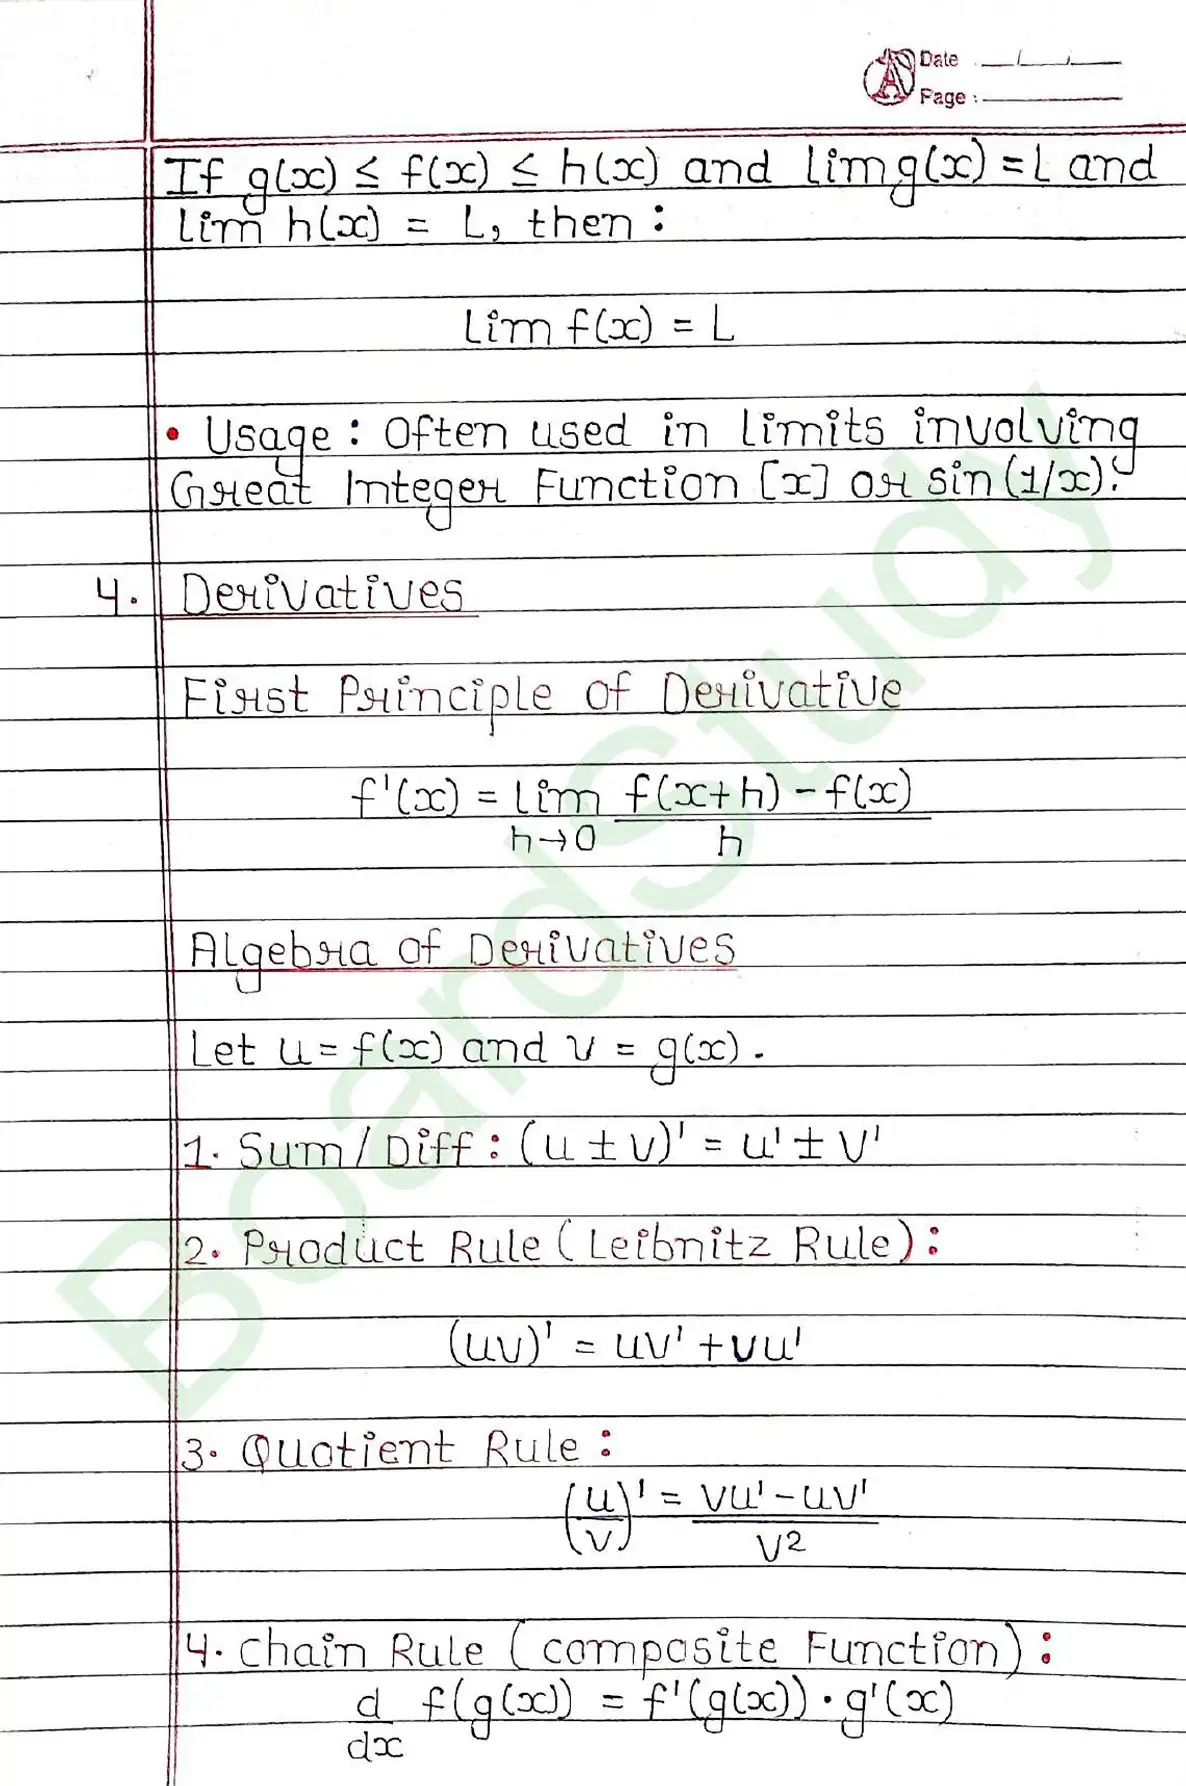 Date
Page :
If g(x) ≤ f(x) ≤ h(x) and lim g(x) = L and
lim h(x) = L, then :
lim f(x) = L
• Usage : Often used in limits involving
Great Integer Function [x] or sin(1/x).
4. Derivatives
First Principle of Derivative
f'(x) = lim f(x+h) - f(x)
h→0 h
Algebra of Derivatives
Let u = f(x) and v = g(x).
1. Sum/Diff : (u ± v)' = u' ± v'
2. Product Rule (Leibnitz Rule) :
(uv)' = uv' + vu'
3. Quotient Rule :
(u/v)' = vu' - uv'
v²
4. Chain Rule (composite Function) :
d f(g(x)) = f'(g(x)) · g'(x)
dx
BoardStudy